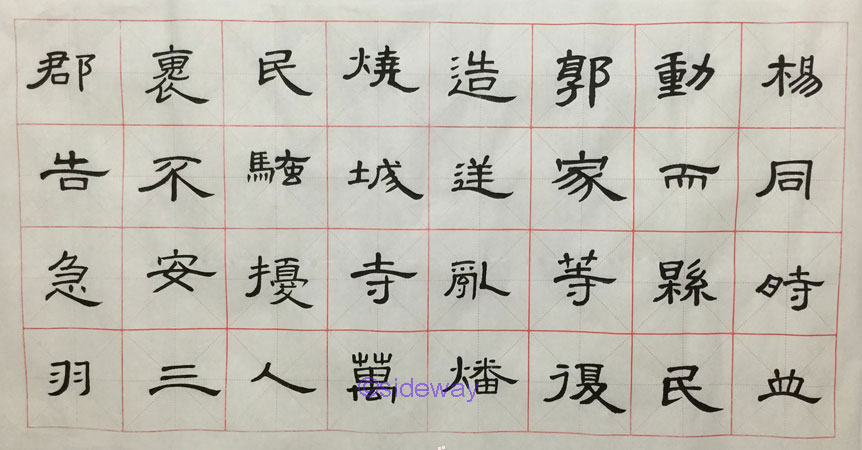 楊同時並
動而縣民
郭家等復
造逆亂燔
燒城寺萬
民騷擾人
裹不安三
郡告急羽
©sideway